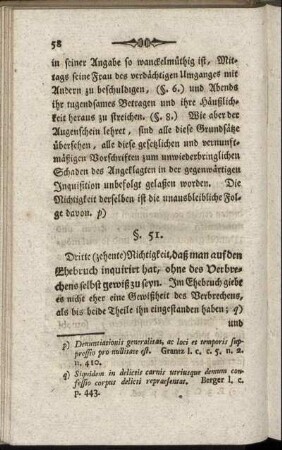 58
in seiner Angabe so wanckelmüthig ist, Mit-
tags seine Frau des verdächtigen Umganges mit
Andern zu beschuldigen, (§. 6.) und Abends
ihr tugendsames Betragen und ihre Häußlich-
keit heraus zu streichen. (§. 8.) Wie aber der
Augenschein lehret, sind alle diese Grundsätze
übersehen, alle diese gesetzlichen und vernunft-
mäßigen Vorschriften zum unwiederbringlichen
Schaden des Angeklagten in der gegenwärtigen
Inquisition unbefolgt gelassen worden. Die
Nichtigkeit derselben ist die unausbleibliche Fol-
ge davon. p)
§. 51.
Dritte (zehente) Nichtigkeit, daß man auf den
Ehebruch inquirirt hat, ohne des Verbre-
chens selbst gewiß zu seyn. Im Ehebruch giebt
es nicht eher eine Gewißheit des Verbrechens,
als bis beide Theile ihn eingestanden haben; q)
und
p) Denuntiationis generalitas, ac loci et temporis sup-
pressio pro nullitate est. Grantz l. c. c. 5. n. 2.
n. 410.
q) Siquidem in delictis carnis utriusque demum con-
fessio corpus delicti repraesentat. Berger l. c.
p. 443.